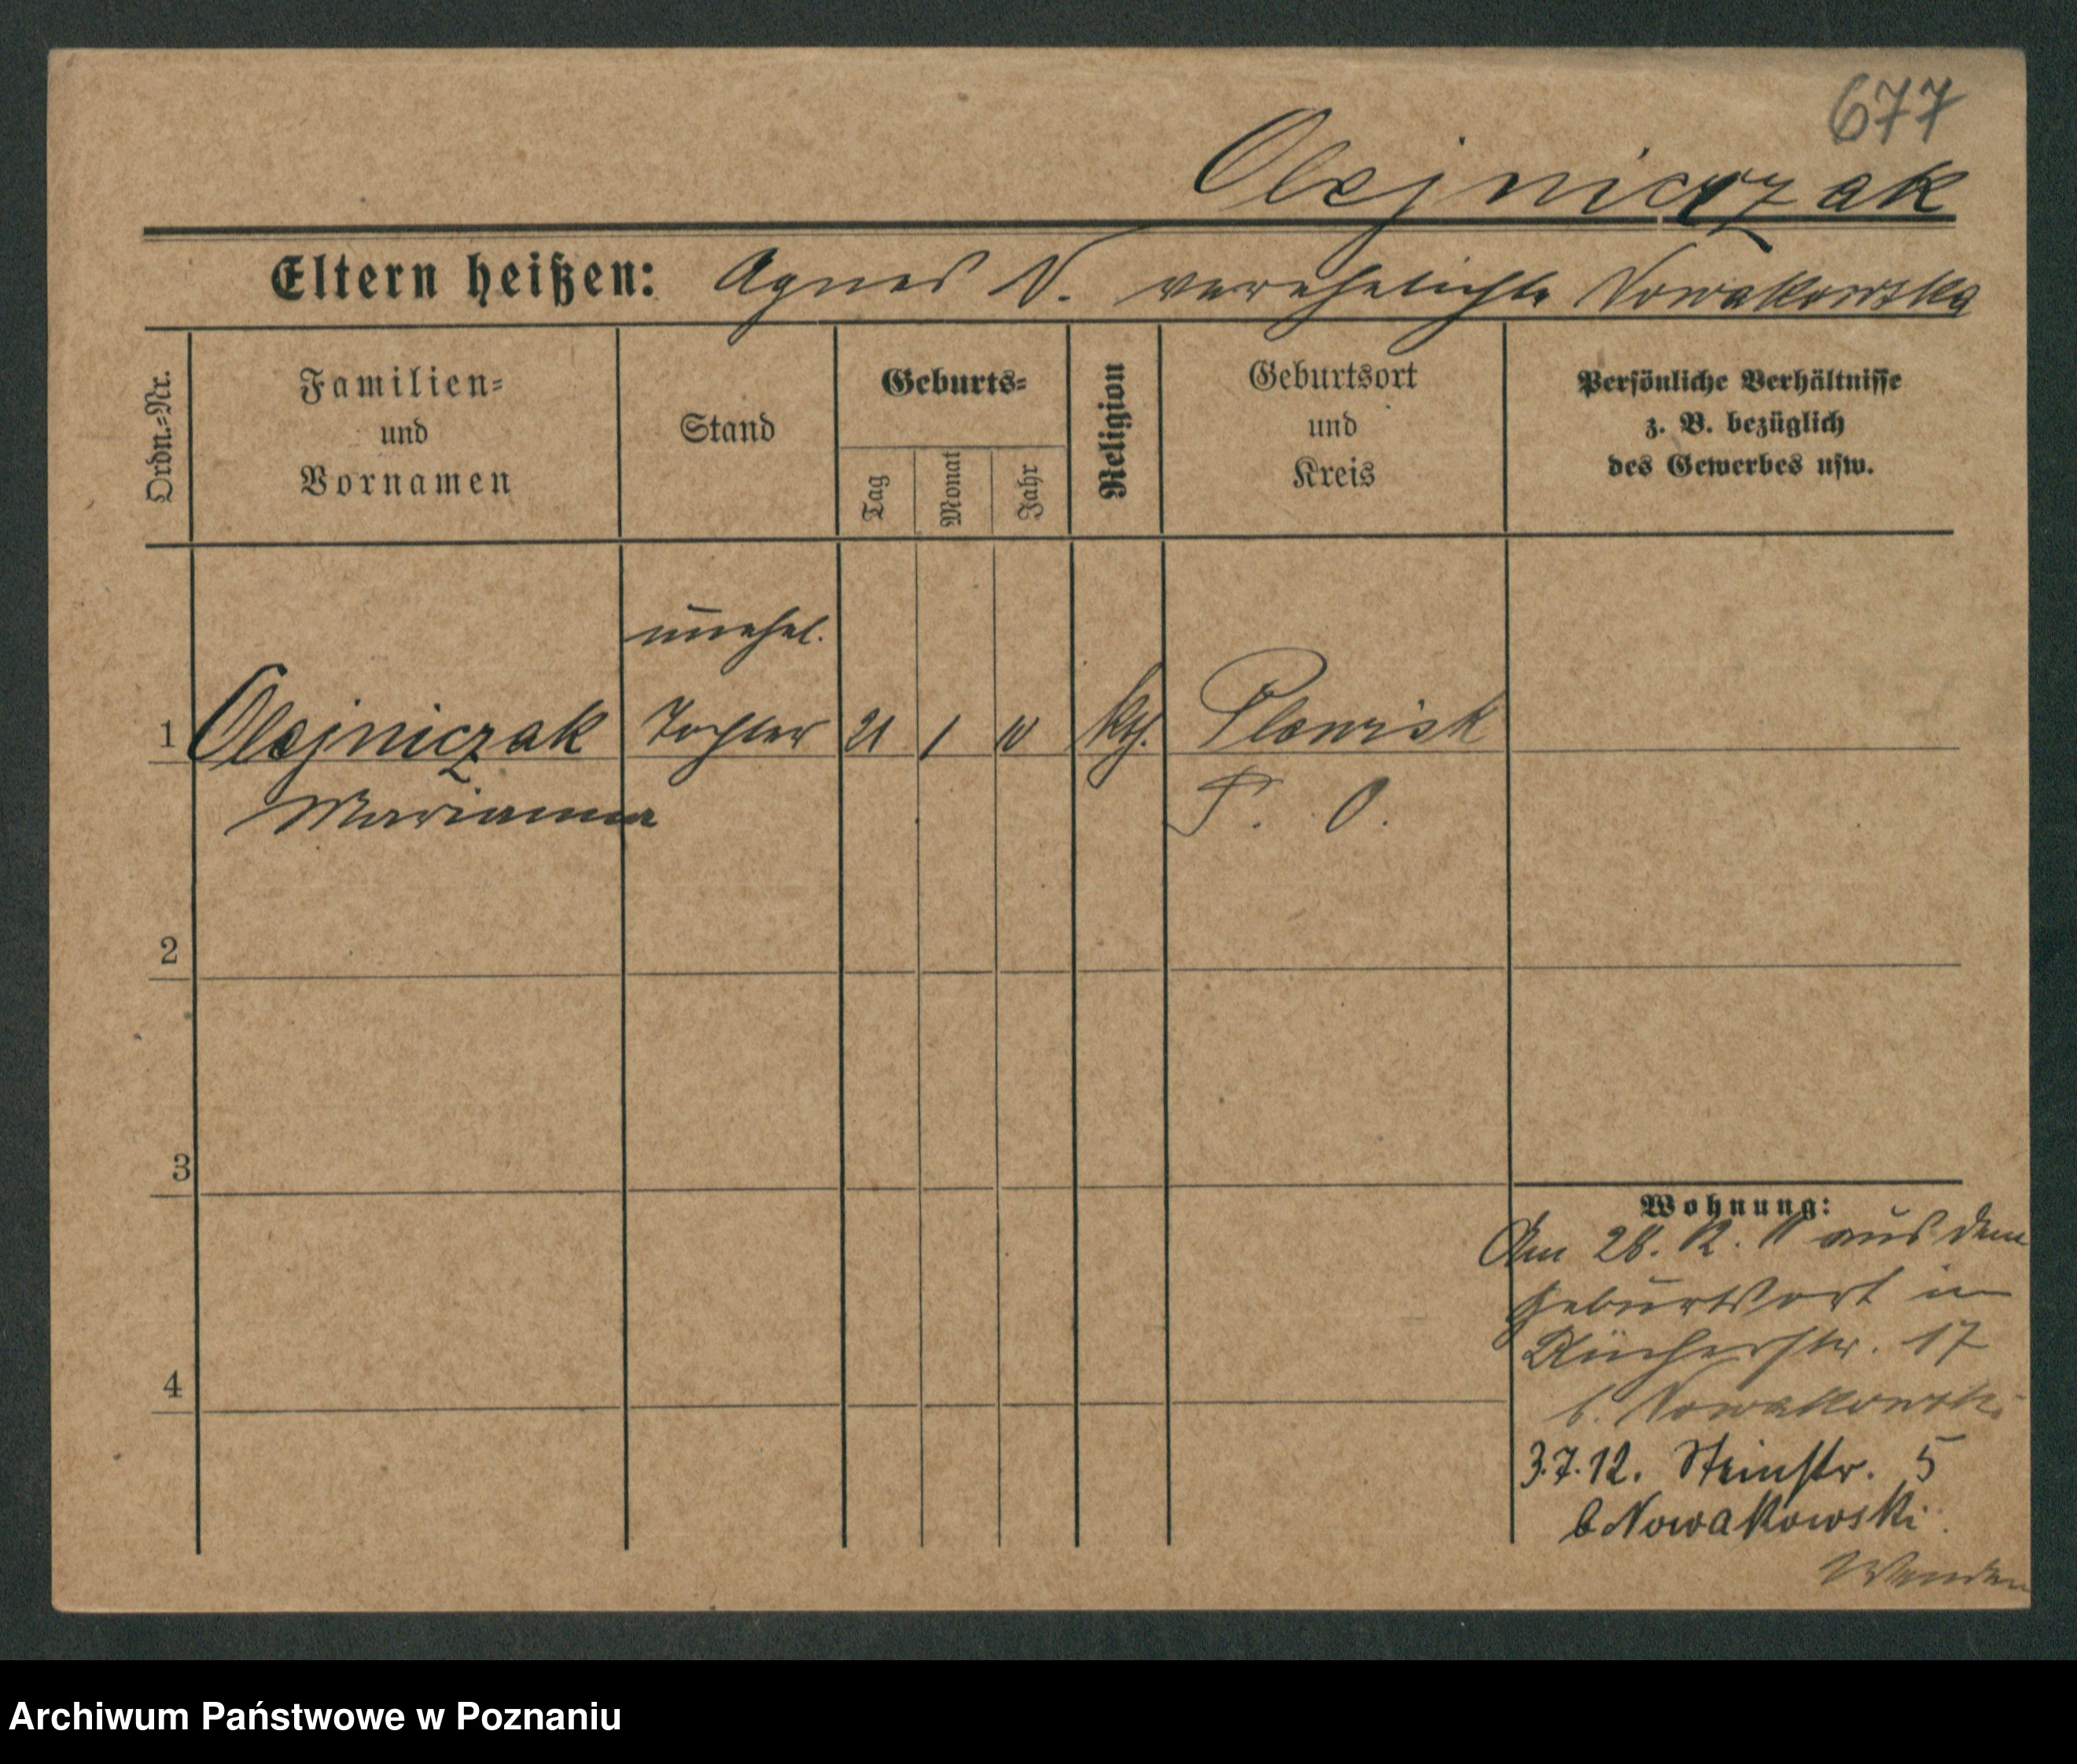 677
Olejniczak
Eltern heißen: Agnes N. verehelichte Nowakowska
Ordn.=Nr.
Familien=
und
Vornamen
Stand
Geburts=
Tag
Monat
Jahr
Religion
Geburtsort
und
Kreis
Persönliche Verhältnisse
z. B. bezüglich
des Gewerbes usw.
unehel.
1 Olejniczak Tochter 21 1 10 kth. Plewisk
Marianna P. O.
2
3
4
Wohnung:
Am 28. 12. 11 aus dem
Geburtsort in
17
b. Nowakowski
3.7.12. Steinstr. 5
b Nowakowski.
Wenden
Archiwum Państwowe w Poznaniu